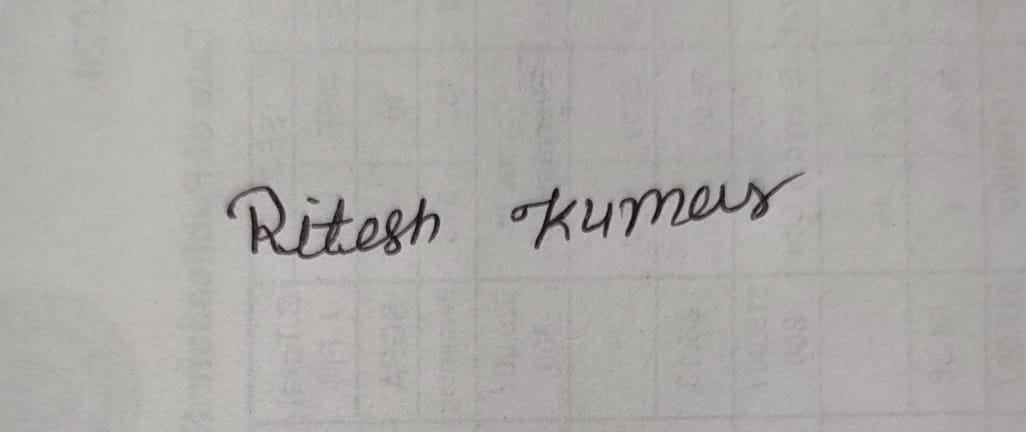 Ritesh Kumar